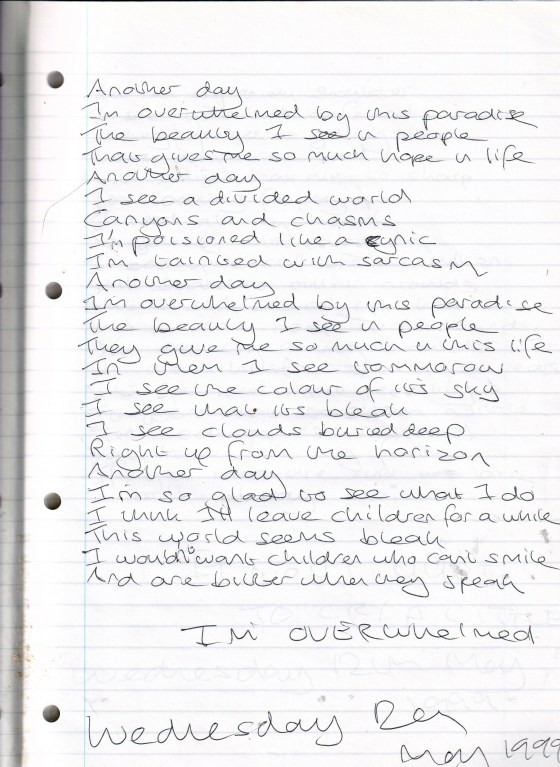 Another day
Im overwhelmed by this paradise
The beauty I see n people
Thats gives me so much hope n life
Another day
I see a divided world
Canyons and chasms
I'm poisioned like a cynic
Im tainted with sarcasm
Another day
Im overwhelmed by this paradise
The beauty I see n people
They give me so much n this life
In them I see tommorow
I see the colour of its sky
I see that its bleak
I see clouds buried deep
Right up from the horizon
Another day
Im so glad to see what I do
I think Ill leave children for a while
This world seems bleak
I wouldn't want children who cant smile
And are bitter when they speak
IM OVERWhelmed
Wednesday
May 1999